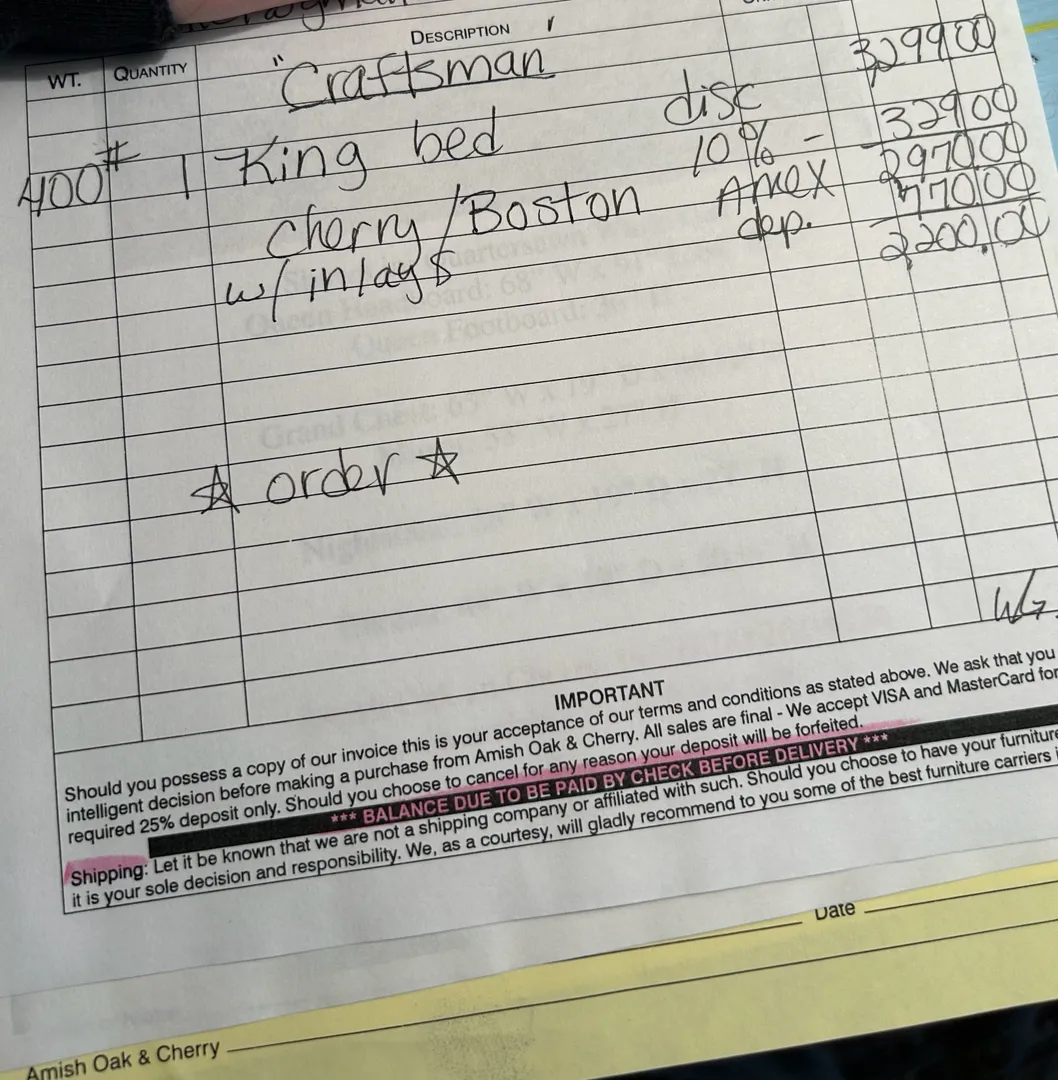 WT. QUANTITY DESCRIPTION
"Craftsman" 3,299 00
disc 329 00
400# 1 King bed 10% - 2970.00
Cherry/Boston Amex 770.00
w/ inlays dep. 2,200.00
☆ order ☆
IMPORTANT
Should you possess a copy of our invoice this is your acceptance of our terms and conditions as stated above. We ask that you
intelligent decision before making a purchase from Amish Oak & Cherry. All sales are final - We accept VISA and MasterCard for
required 25% deposit only. Should you choose to cancel for any reason your deposit will be forfeited.
*** BALANCE DUE TO BE PAID BY CHECK BEFORE DELIVERY ***
Shipping: Let it be known that we are not a shipping company or affiliated with such. Should you choose to have your furniture
it is your sole decision and responsibility. We, as a courtesy, will gladly recommend to you some of the best furniture carriers
Date
Amish Oak & Cherry